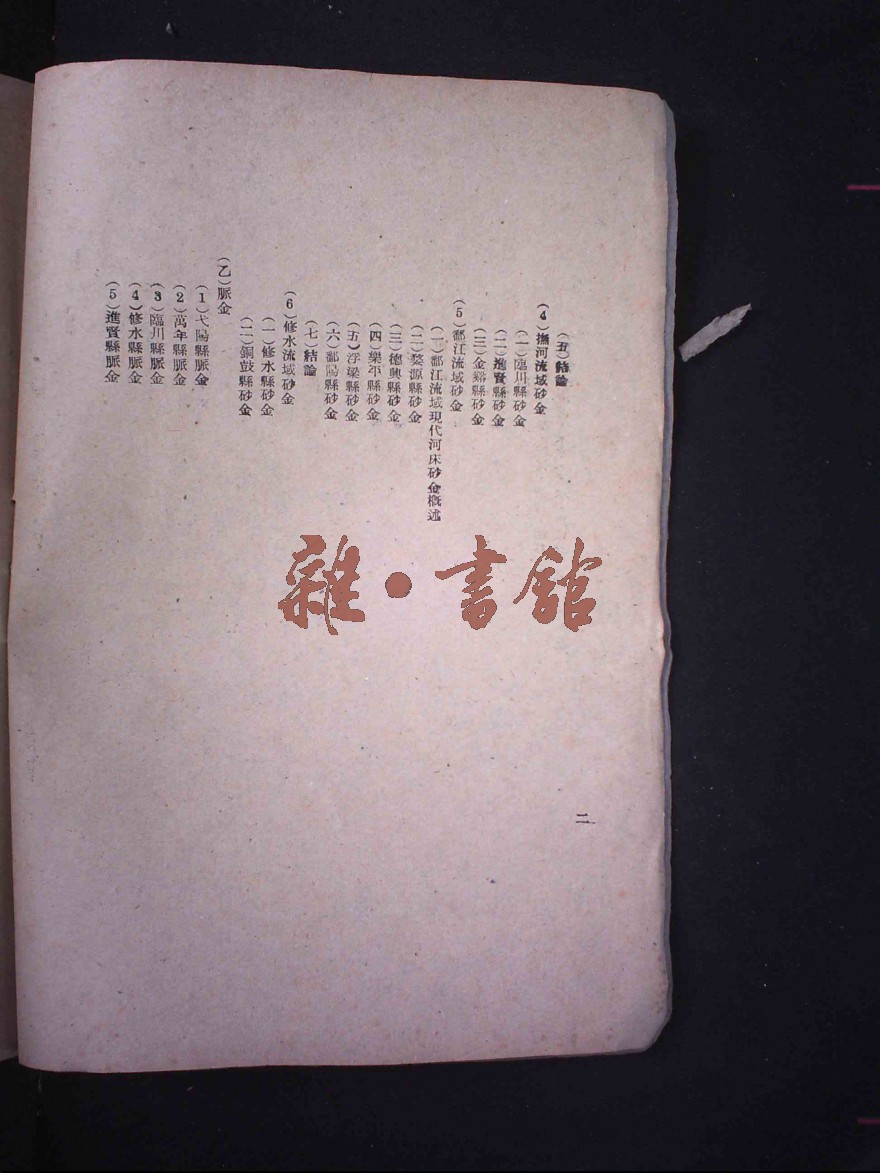 (五)結論
(4)撫河流域砂金
(一)臨川縣砂金
(二)進賢縣砂金
(三)金谿縣砂金
(5)鄱江流域砂金
(一)鄱江流域現代河床砂金概述
(二)婺源縣砂金
(三)德興縣砂金
(四)樂平縣砂金
(五)浮梁縣砂金
(六)鄱陽縣砂金
(七)結論
(6)修水流域砂金
(一)修水縣砂金
(二)銅鼓縣砂金
(乙)脈金
(1)弋陽縣脈金
(2)萬年縣脈金
(3)臨川縣脈金
(4)修水縣脈金
(5)進賢縣脈金
二
雜·書館